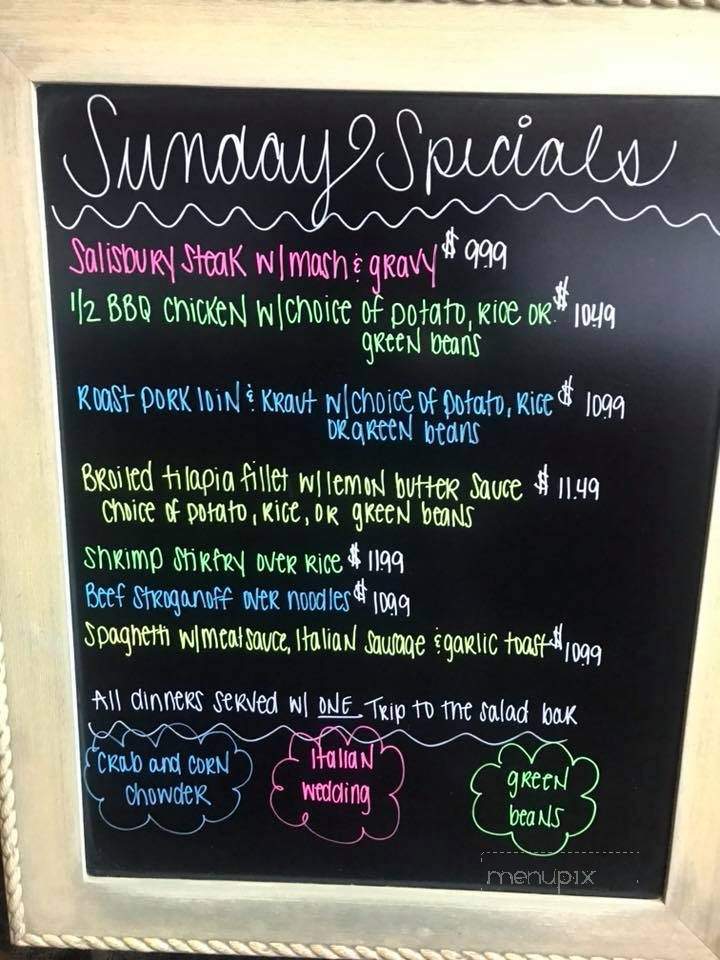 Sunday Specials
Salisbury Steak w/ mash & gravy $ 9.99
1/2 BBQ Chicken w/choice of potato, rice or $ 10.49
green beans
Roast pork loin & kraut w/choice of potato, rice $ 10.99
or green beans
Broiled tilapia fillet w/ lemon butter sauce $ 11.49
choice of potato, rice, or green beans
Shrimp Stirfry over rice $ 11.99
Beef Stroganoff over noodles $ 10.99
Spaghetti w/meatsauce, Italian Sausage & garlic toast $ 10.99
All dinners served w/ ONE Trip to the salad bar
Crab and corn chowder
Italian wedding
green beans
menupix